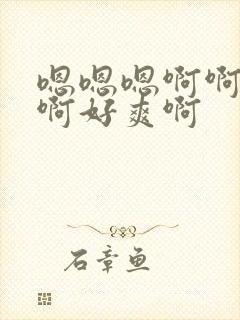 嗯嗯嗯啊啊
啊好爽啊
石章鱼